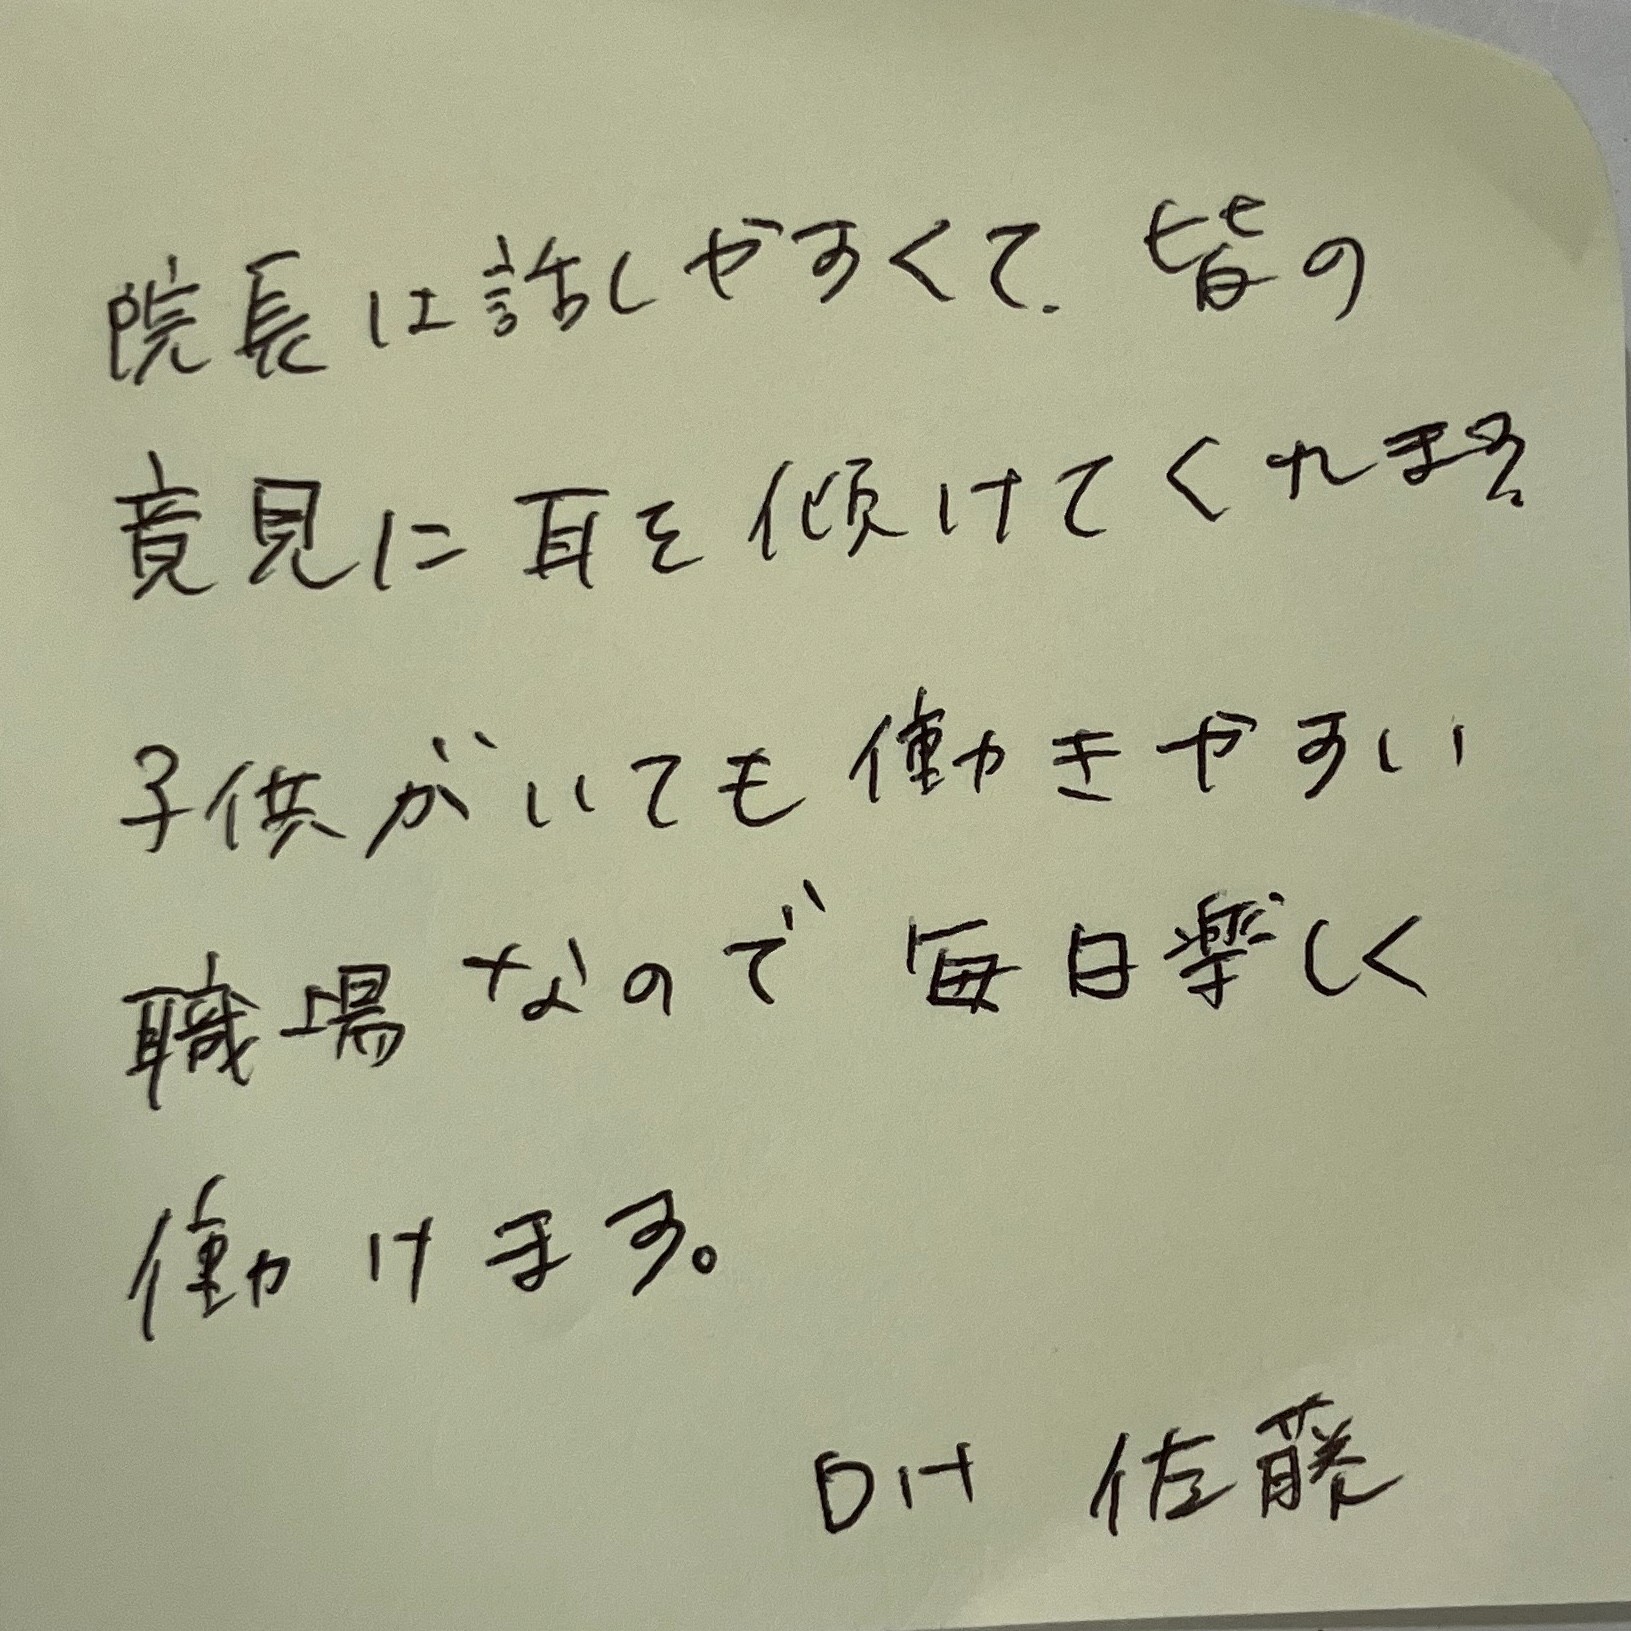 院長は話しやすくて、皆の
意見に耳を傾けてくれます。
子供がいても働きやすい
職場なので毎日楽しく
働けます。
DH 佐藤